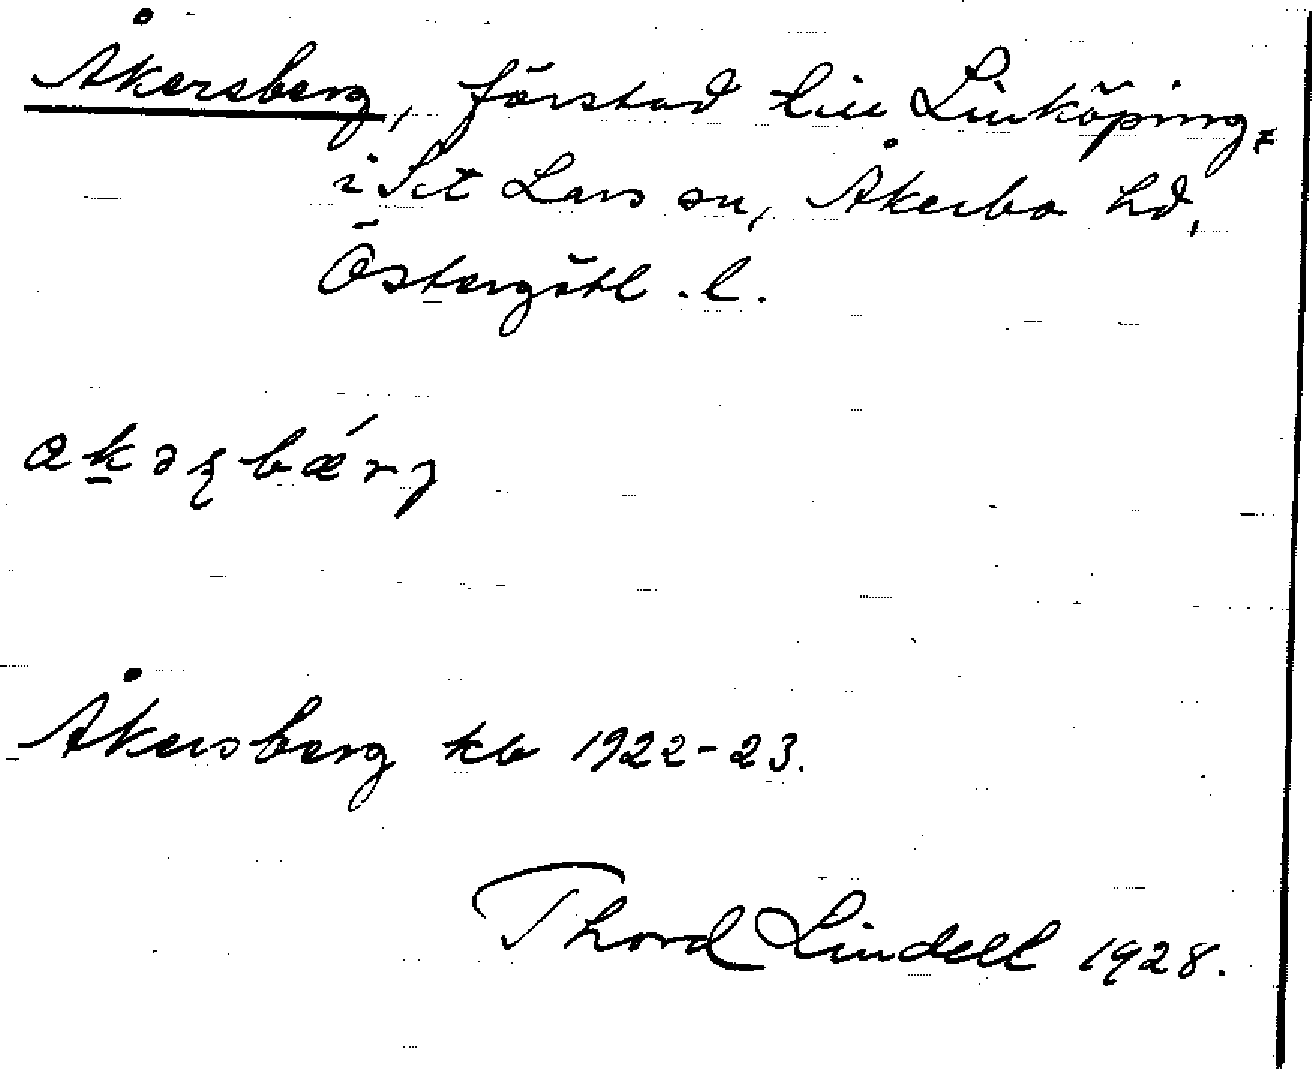 Åkersberg, förstad till Linköping,
i S:t Lars sn, Åkerbo hd,
Östergötl. l.
akəʂbǽrj
Åkersberg kb 1922-23.
Thord Lindell 1928.